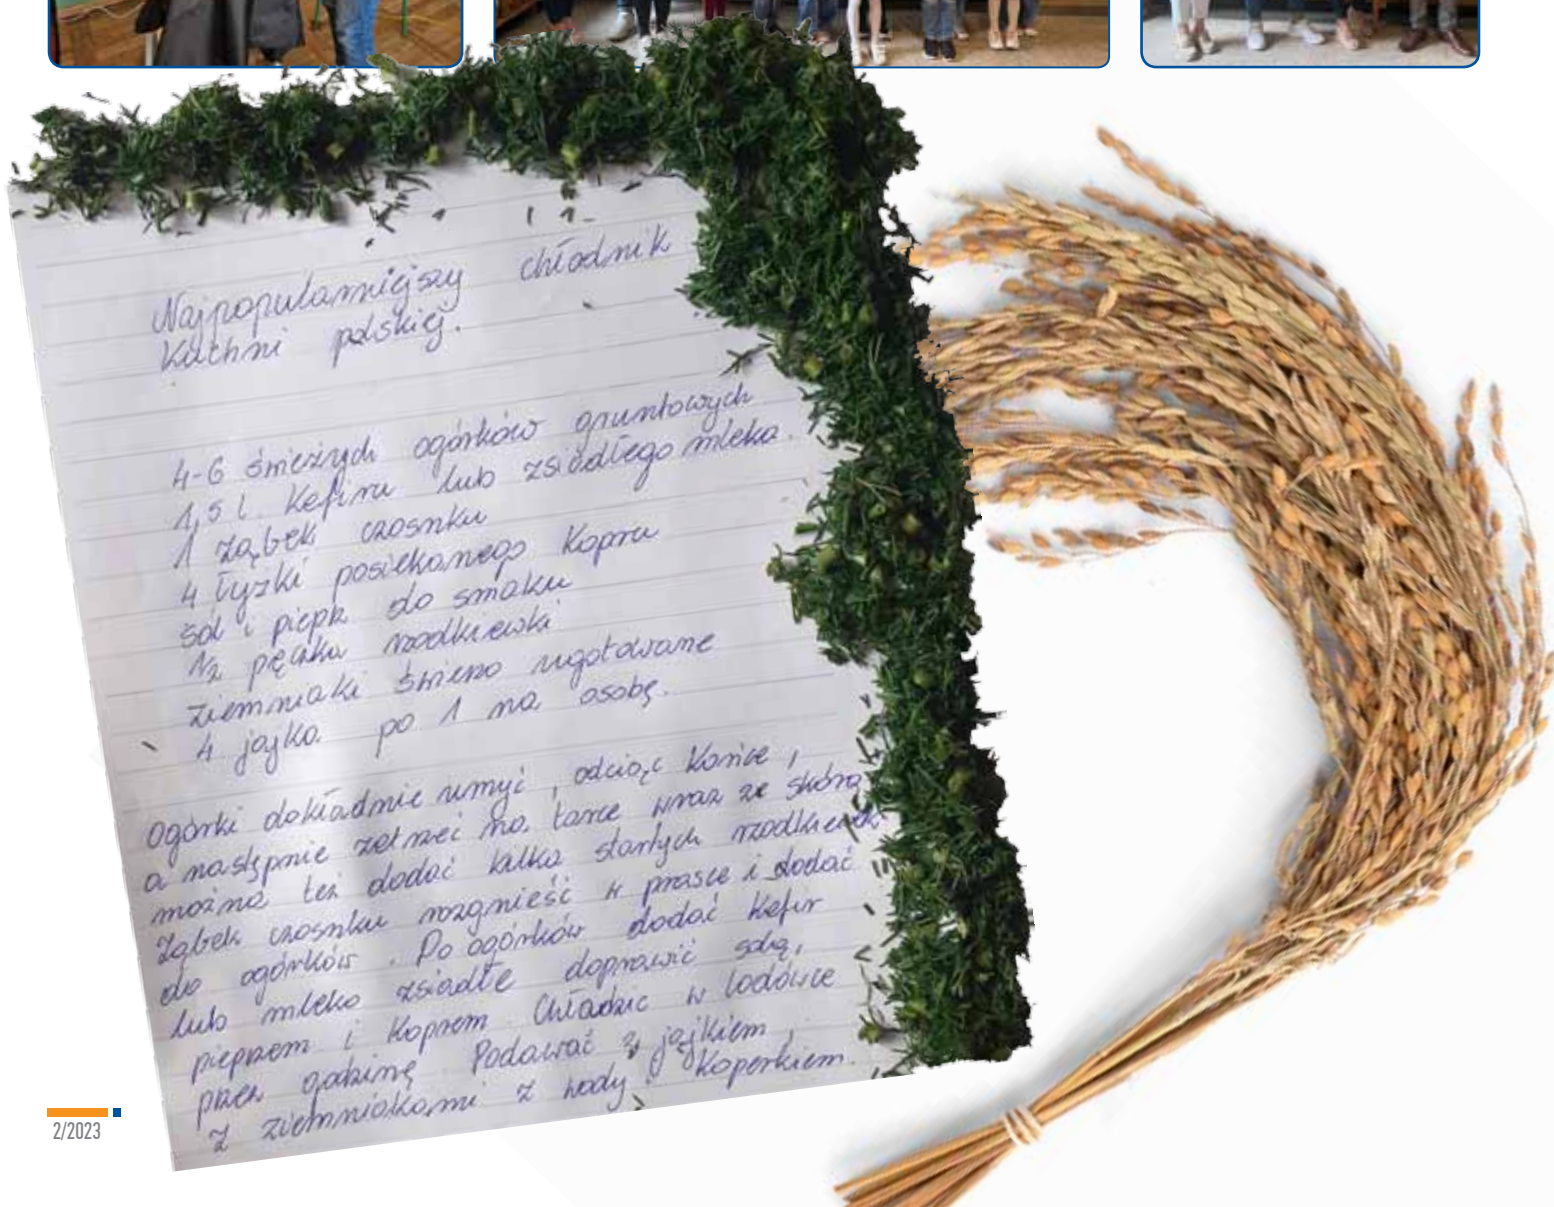 Najpopularniejszy chłodnik
kuchni polskiej.
4-6 świeżych ogórków gruntowych
1,5 l kefiru lub zsiadłego mleka.
1 ząbek czosnku
4 łyżki posiekanego kopru
sól i pieprz do smaku
1/2 pęczka rzodkiewki
ziemniaki świeżo ugotowane
4 jajka po 1 na osobę.
Ogórki dokładnie umyć, odciąć końce,
a następnie zetrzeć na tarce wraz ze skórą
można też dodać kilka startych rzodkiewek
ząbek czosnku rozgnieść w prasce i dodać
do ogórków. Do ogórków dodać kefir
lub mleko zsiadłe doprawić solą,
pieprzem i koprem. Chłodzić w lodówce
przez godzinę. Podawać z jajkiem,
z ziemniakami z wody i koperkiem.
2/2023